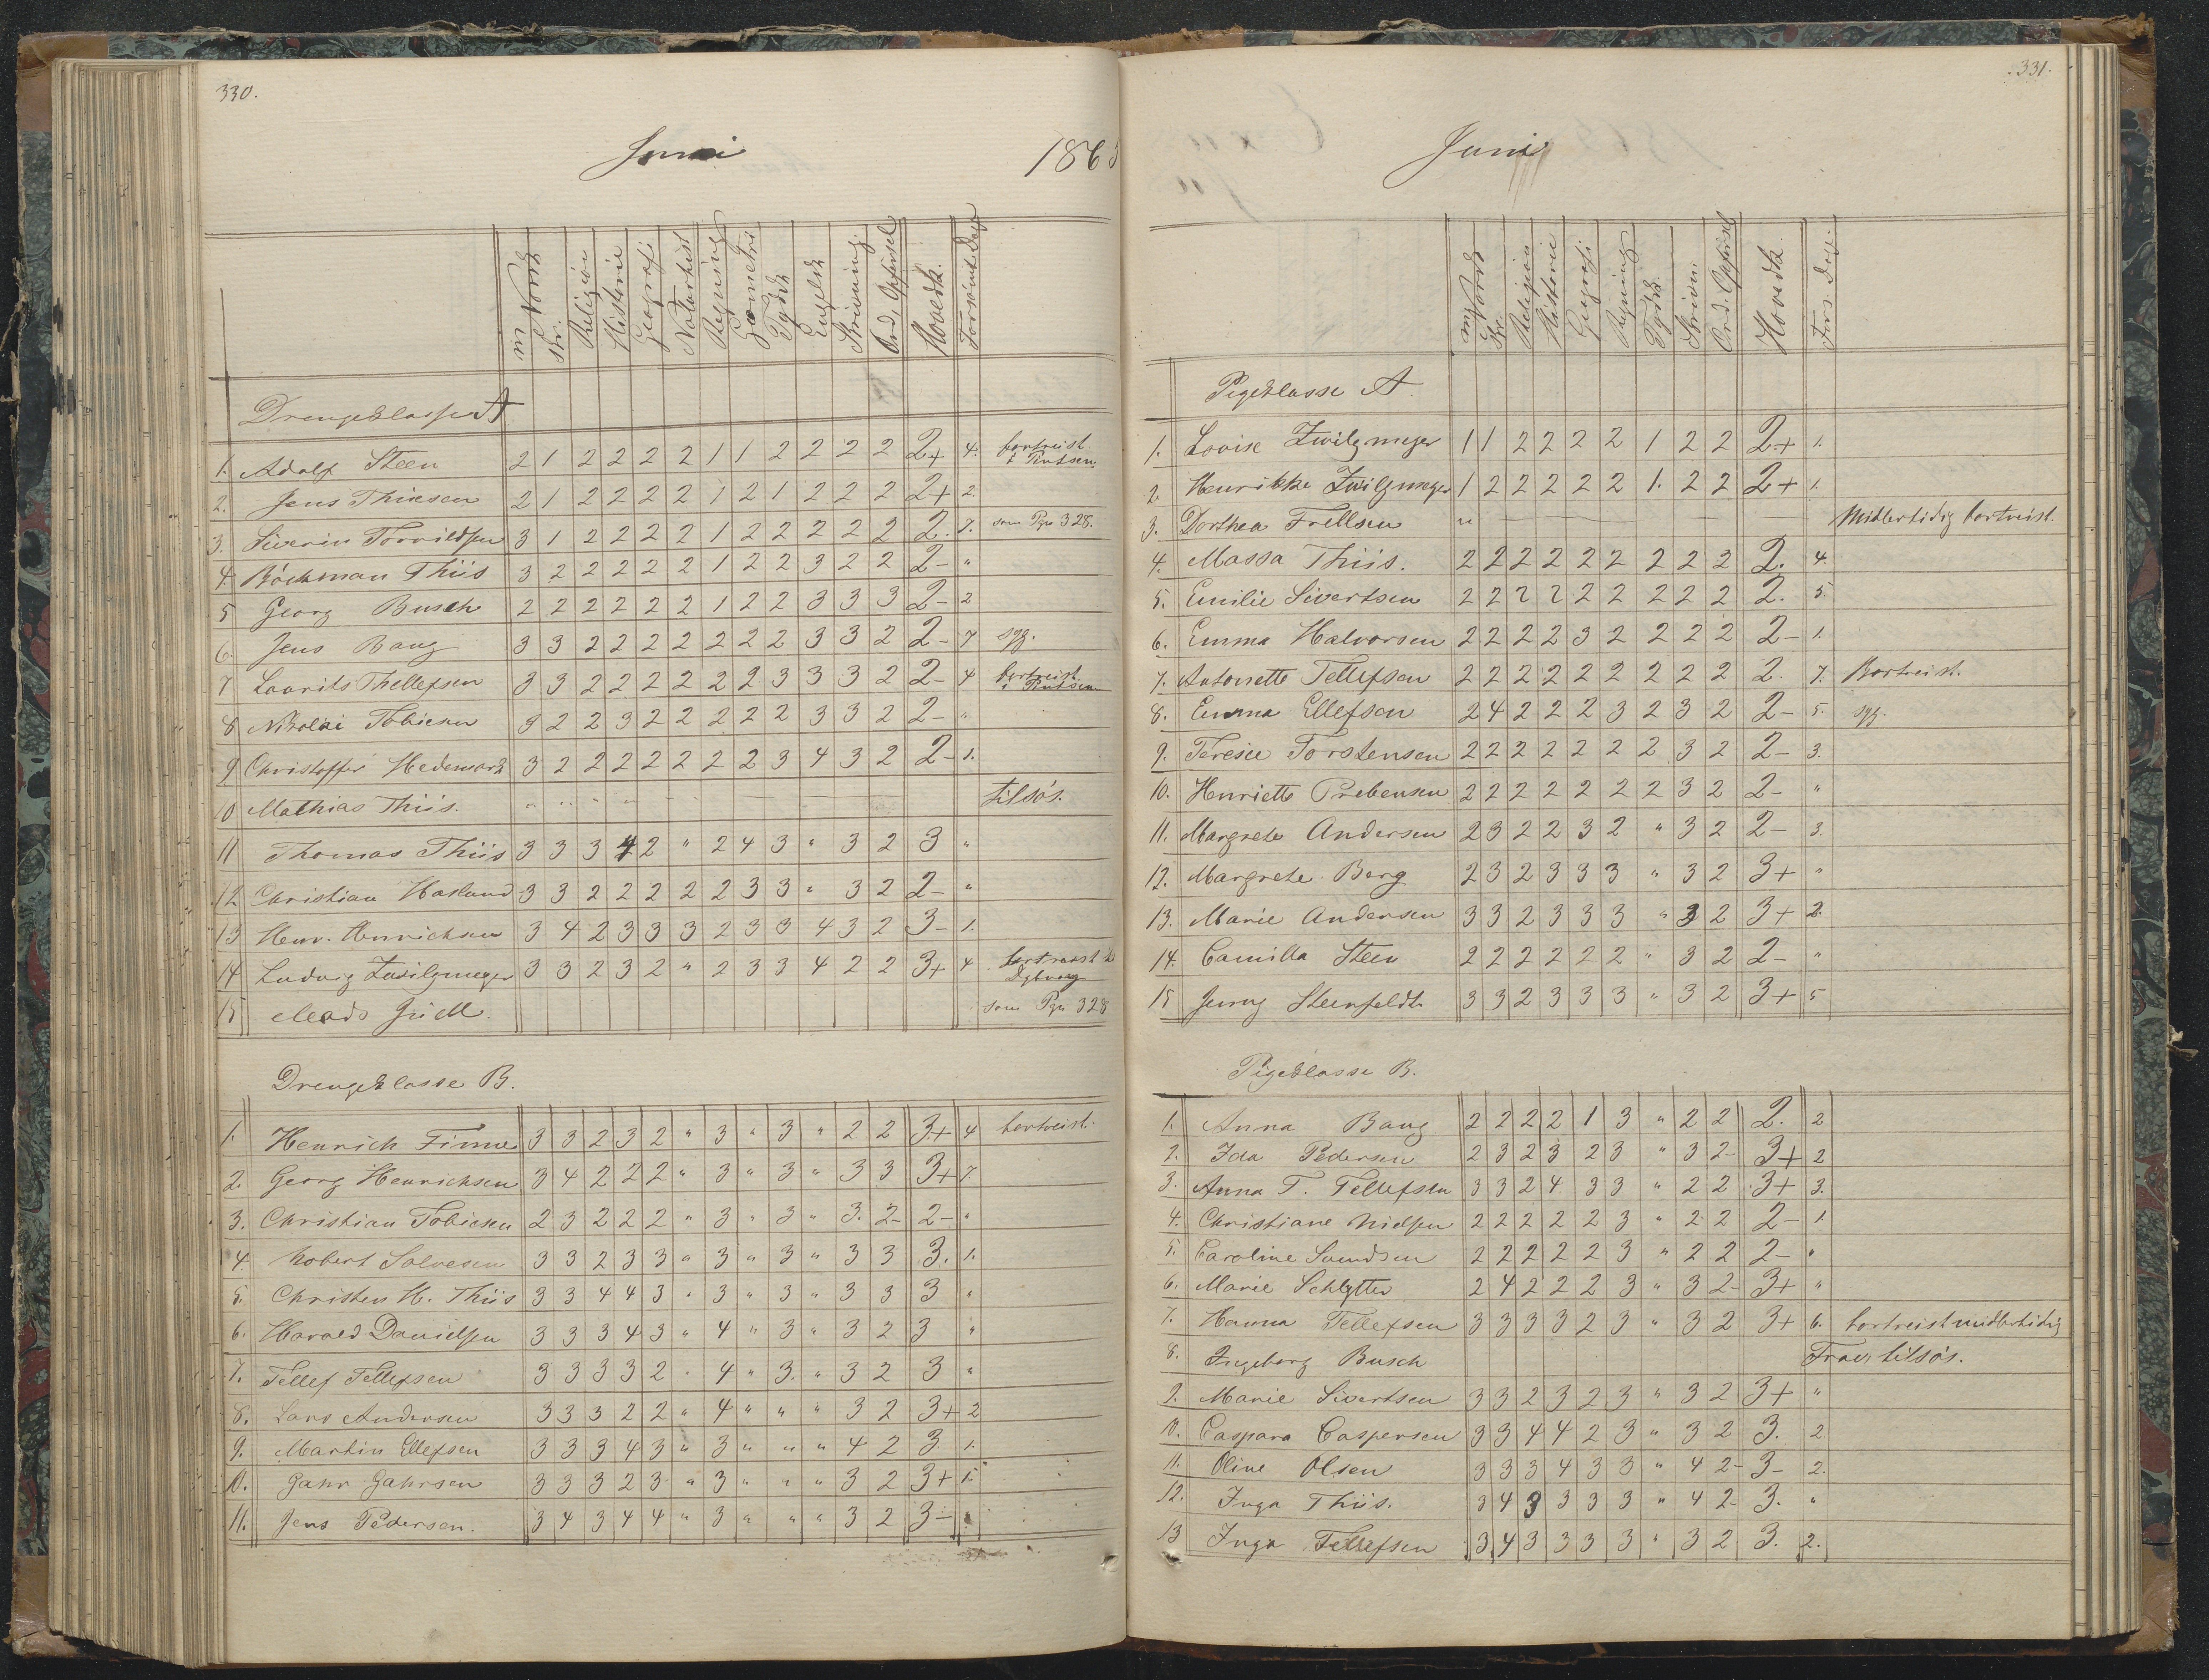 330.
Juni 186
m Norsk
skr.
Religion
Historie
Geografi
Naturhist
Regning
Geometri
Tydsk
Engelsk
Skrivning.
Ord, Opførsel
Hovedk.
Forsømte Dage
Drengeklasse A
1. Adolf Steen 2 1 2 2 2 2 1 1 2 2 2 2 2+ 4. bortreist
2. Jens Thiesen 2 1 2 2 2 2 1 2 1 2 2 2 2+ 2.
3. Siverin Torvildsen 3 1 2 2 2 2 1 2 2 2 2 2 2. 7. som Pg. 328.
4. Böckman Thiis 3 2 2 2 2 2 1 2 2 3 2 2 2- "
5 Georg Busch 2 2 2 2 2 2 1 2 2 3 3 3 2- 2
6. Jens Bang 3 3 2 2 2 2 2 2 2 3 3 2 2- 7 syg.
7 Laurits Thellefsen 3 3 2 2 2 2 2 2 3 3 3 2 2- 4 bortreist
8 Nikolai Tobiesen 3 2 2 3 2 2 2 2 2 3 3 2 2- "
9 Christoffer Hedemark 3 2 2 2 2 2 2 2 3 4 3 2 2- 1.
10 Mathias Thiis. " " " " tilsös.
11 Thomas Thiis 3 3 3 4 2 " 2 4 3 " 3 2 3 "
12 Christian Hasund 3 3 2 2 2 2 2 3 3 " 3 2 2- "
13 Henr. Henrichsen 3 4 2 3 3 3 2 3 3 4 3 2 3- 1.
14 Ludvig Zwilgmeyer 3 3 2 3 2 " 2 3 3 4 2 2 3+ 4
15 Mads som Pg. 328
Drengeklasse B.
1. Henrich Finne 3 3 2 3 2 " 3 " 3 " 2 2 3+ 4 bortreist.
2. Georg Henrichsen 3 4 2 2 2 " 3 " 3 " 3 3 3+ 7.
3. Christian Tobiesen 2 3 2 2 2 " 3 " 3 " 3. 2- 2- "
4 Robert Salvesen 3 3 2 3 3 " 3 " 3 " 3 3 3. 1.
5. Christen H. Thiis 3 3 4 4 3 " 3 " 3 " 3 3 3 "
6. Harald Danielsen 3 3 3 4 3 " 4 " 3 " 3 2 3 "
7. Tellef Tellefsen 3 3 3 3 2 " 4 " 3. " 3 2 3 "
8. Lars Andersen 3 3 3 2 2 " 4 " " " 3 2 3+ 2
9. Martin Ellefsen 3 3 3 4 3 " 3 " " " 4 2 3. 1.
10. Jahn Jahrsen 3 3 3 2 3 " 3 " " " 3 2 3+ 1.
11. Jens Pedersen. 3 4 3 4 4 " 3 " " " 3 2 3-
331.
Juni
m Norsk
skr.
Religion
Historie
Geografi
Regning
Tydsk.
Skrivn.
Ord. Opførsel
Hovedk.
Fors. Dage.
Pigeklasse A
1. Lovise Zwilgmeyer 1 1 2 2 2 2 1 2 2 2+ 1.
2. Henrikke Zwilgmeyer 1 2 2 2 2 2 1. 2 2 2+ 1.
3. Dorthea Frellsen " Midlertidig bortreist.
4. Massa Thiis. 2 2 2 2 2 2 2 2 2 2. 4.
5. Emilie Sivertsen 2 2 2 2 2 2 2 2 2 2. 5.
6. Emma Halvorsen 2 2 2 2 3 2 2 2 2 2- 1.
7. Antonette Tellefsen 2 2 2 2 2 2 2 2 2 2. 7. Bortreist.
8. Emma Ellefsen 2 4 2 2 2 3 2 3 2 2- 5. syg.
9. Teresie Torstensen 2 2 2 2 2 2 2 3 2 2- 3.
10. Henriette Prebensen 2 2 2 2 2 2 2 3 2 2- "
11. Margrete Andersen 2 3 2 2 3 2 " 3 2 2- 3.
12. Margrete Berg 2 3 2 3 3 3 " 3 2 3+ "
13. Marie Andersen 3 3 2 3 3 3 " 3 2 3+ 2.
14. Camilla Steen 2 2 2 2 2 2 " 3 2 2- "
15 Jenny Steenfeldt 3 3 2 3 3 3 " 3 2 3+ 5
Pigeklasse B.
1. Anna Bang 2 2 2 2 1 3 " 2 2 2. 2
2. Ida Pedersen 2 3 2 3 2 3 " 3 2- 3+ 2
3. Anna T. Tellefsen 3 3 2 4 3 3 " 2 2 3+ 3.
4. Christiane Nielsen 2 2 2 2 2 3 " 2 2 2- 1.
5. Caroline Svendsen 2 2 2 2 2 3 " 2 2 2- "
6. Marie Schlytter 2 4 2 2 2 3 " 3 2- 3+ "
7. Hanna Tellefsen 3 3 3 3 2 3 " 3 2 3+ 6. bortreist midlertidig
8. Ingeborg Busch Fravr tilsös.
9. Marie Sivertsen 3 3 2 3 2 3 " 3 2 3+ "
10. Caspara Caspersen 3 3 4 4 2 3 " 3 2 3. 2.
11. Oline Olsen 3 3 3 4 3 3 " 4 2- 3- 2.
12. Inga Thiis. 3 4 3 3 3 3 " 4 2- 3. "
13 Inga Tellefsen 3 4 3 3 3 3 " 3 2 3. 2.